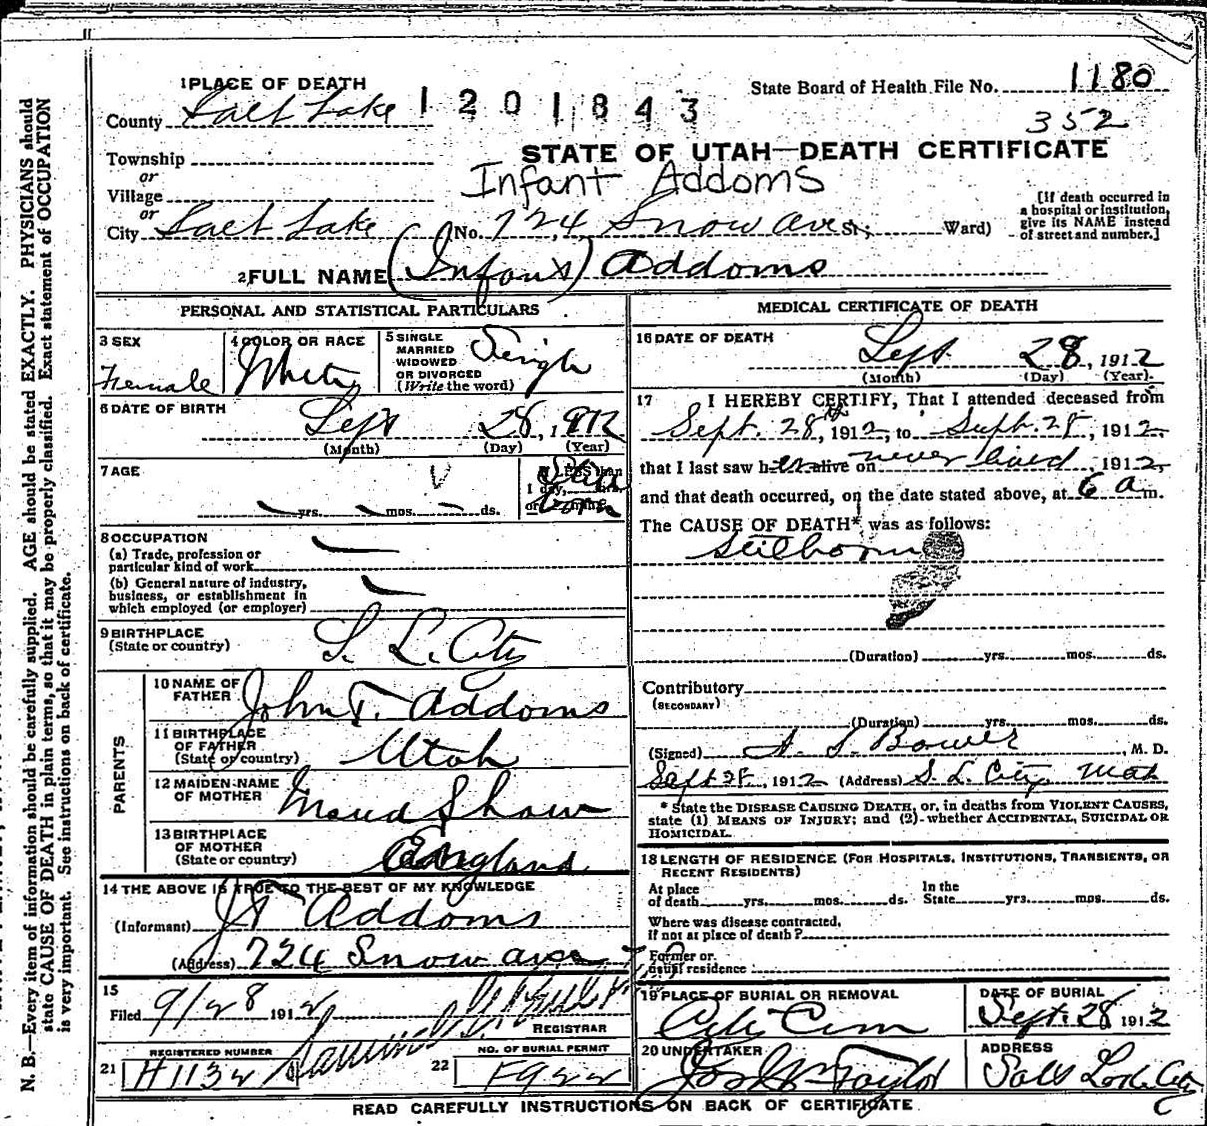 1 PLACE OF DEATH
County Salt Lake
1201843
State Board of Health File No. 1180
352
STATE OF UTAH—DEATH CERTIFICATE
Township
or
Village
or
Infant Addoms
City Salt Lake (No. 724 Snow ave St; Ward)
[If death occurred in a hospital or institution, give its NAME instead of street and number.]
2 FULL NAME (Infant) Addoms
PERSONAL AND STATISTICAL PARTICULARS
3 SEX
Female
4 COLOR OR RACE
White
5 SINGLE
MARRIED
WIDOWED
OR DIVORCED
(Write the word)
Single
6 DATE OF BIRTH
Sept 28, 1912
(Month) (Day) (Year)
7 AGE
yrs. mos. ds.
If LESS than
1 day, hrs.
Still born
8 OCCUPATION
(a) Trade, profession or
particular kind of work
(b) General nature of industry,
business, or establishment in
which employed (or employer)
9 BIRTHPLACE
(State or country)
S. L. City
PARENTS
10 NAME OF
FATHER
John T. Addoms
11 BIRTHPLACE
OF FATHER
(State or country)
Utah
12 MAIDEN NAME
OF MOTHER
Maud Shaw
13 BIRTHPLACE
OF MOTHER
(State or country)
England
14 THE ABOVE IS TRUE TO THE BEST OF MY KNOWLEDGE
(Informant) J T Addoms
(Address) 724 Snow ave
15
Filed 9/28 1912
REGISTRAR
21 REGISTERED NUMBER
H1132
22 NO. OF BURIAL PERMIT
F922
MEDICAL CERTIFICATE OF DEATH
16 DATE OF DEATH
Sept 28, 1912
(Month) (Day) (Year)
17 I HEREBY CERTIFY, That I attended deceased from
Sept. 28th, 1912, to Sept. 28, 1912,
that I last saw her alive on never lived, 1912
and that death occurred, on the date stated above, at 6 a m.
The CAUSE OF DEATH* was as follows:
Stilborn
(Duration) yrs. mos. ds.
Contributory
(SECONDARY)
(Duration) yrs. mos. ds.
(Signed) A. S. Bower, M. D.
Sept 28, 1912 (Address) S. L. City Utah
* State the DISEASE CAUSING DEATH, or, in deaths from VIOLENT CAUSES,
state (1) MEANS OF INJURY; and (2) whether ACCIDENTAL, SUICIDAL OR
HOMICIDAL.
18 LENGTH OF RESIDENCE (FOR HOSPITALS, INSTITUTIONS, TRANSIENTS, OR
RECENT RESIDENTS)
At place
of death yrs. mos. ds.
In the
State yrs. mos. ds.
Where was disease contracted,
If not at place of death?
Former or
usual residence
19 PLACE OF BURIAL OR REMOVAL
City Cem
DATE OF BURIAL
Sept. 28 1912
20 UNDERTAKER
Jos Wm Taylor
ADDRESS
Salt Lake City
READ CAREFULLY INSTRUCTIONS ON BACK OF CERTIFICATE
N. B.—Every item of information should be carefully supplied. AGE should be stated EXACTLY. PHYSICIANS should
state CAUSE OF DEATH in plain terms, so that it may be properly classified. Exact statement of OCCUPATION
is very important. See instructions on back of certificate.